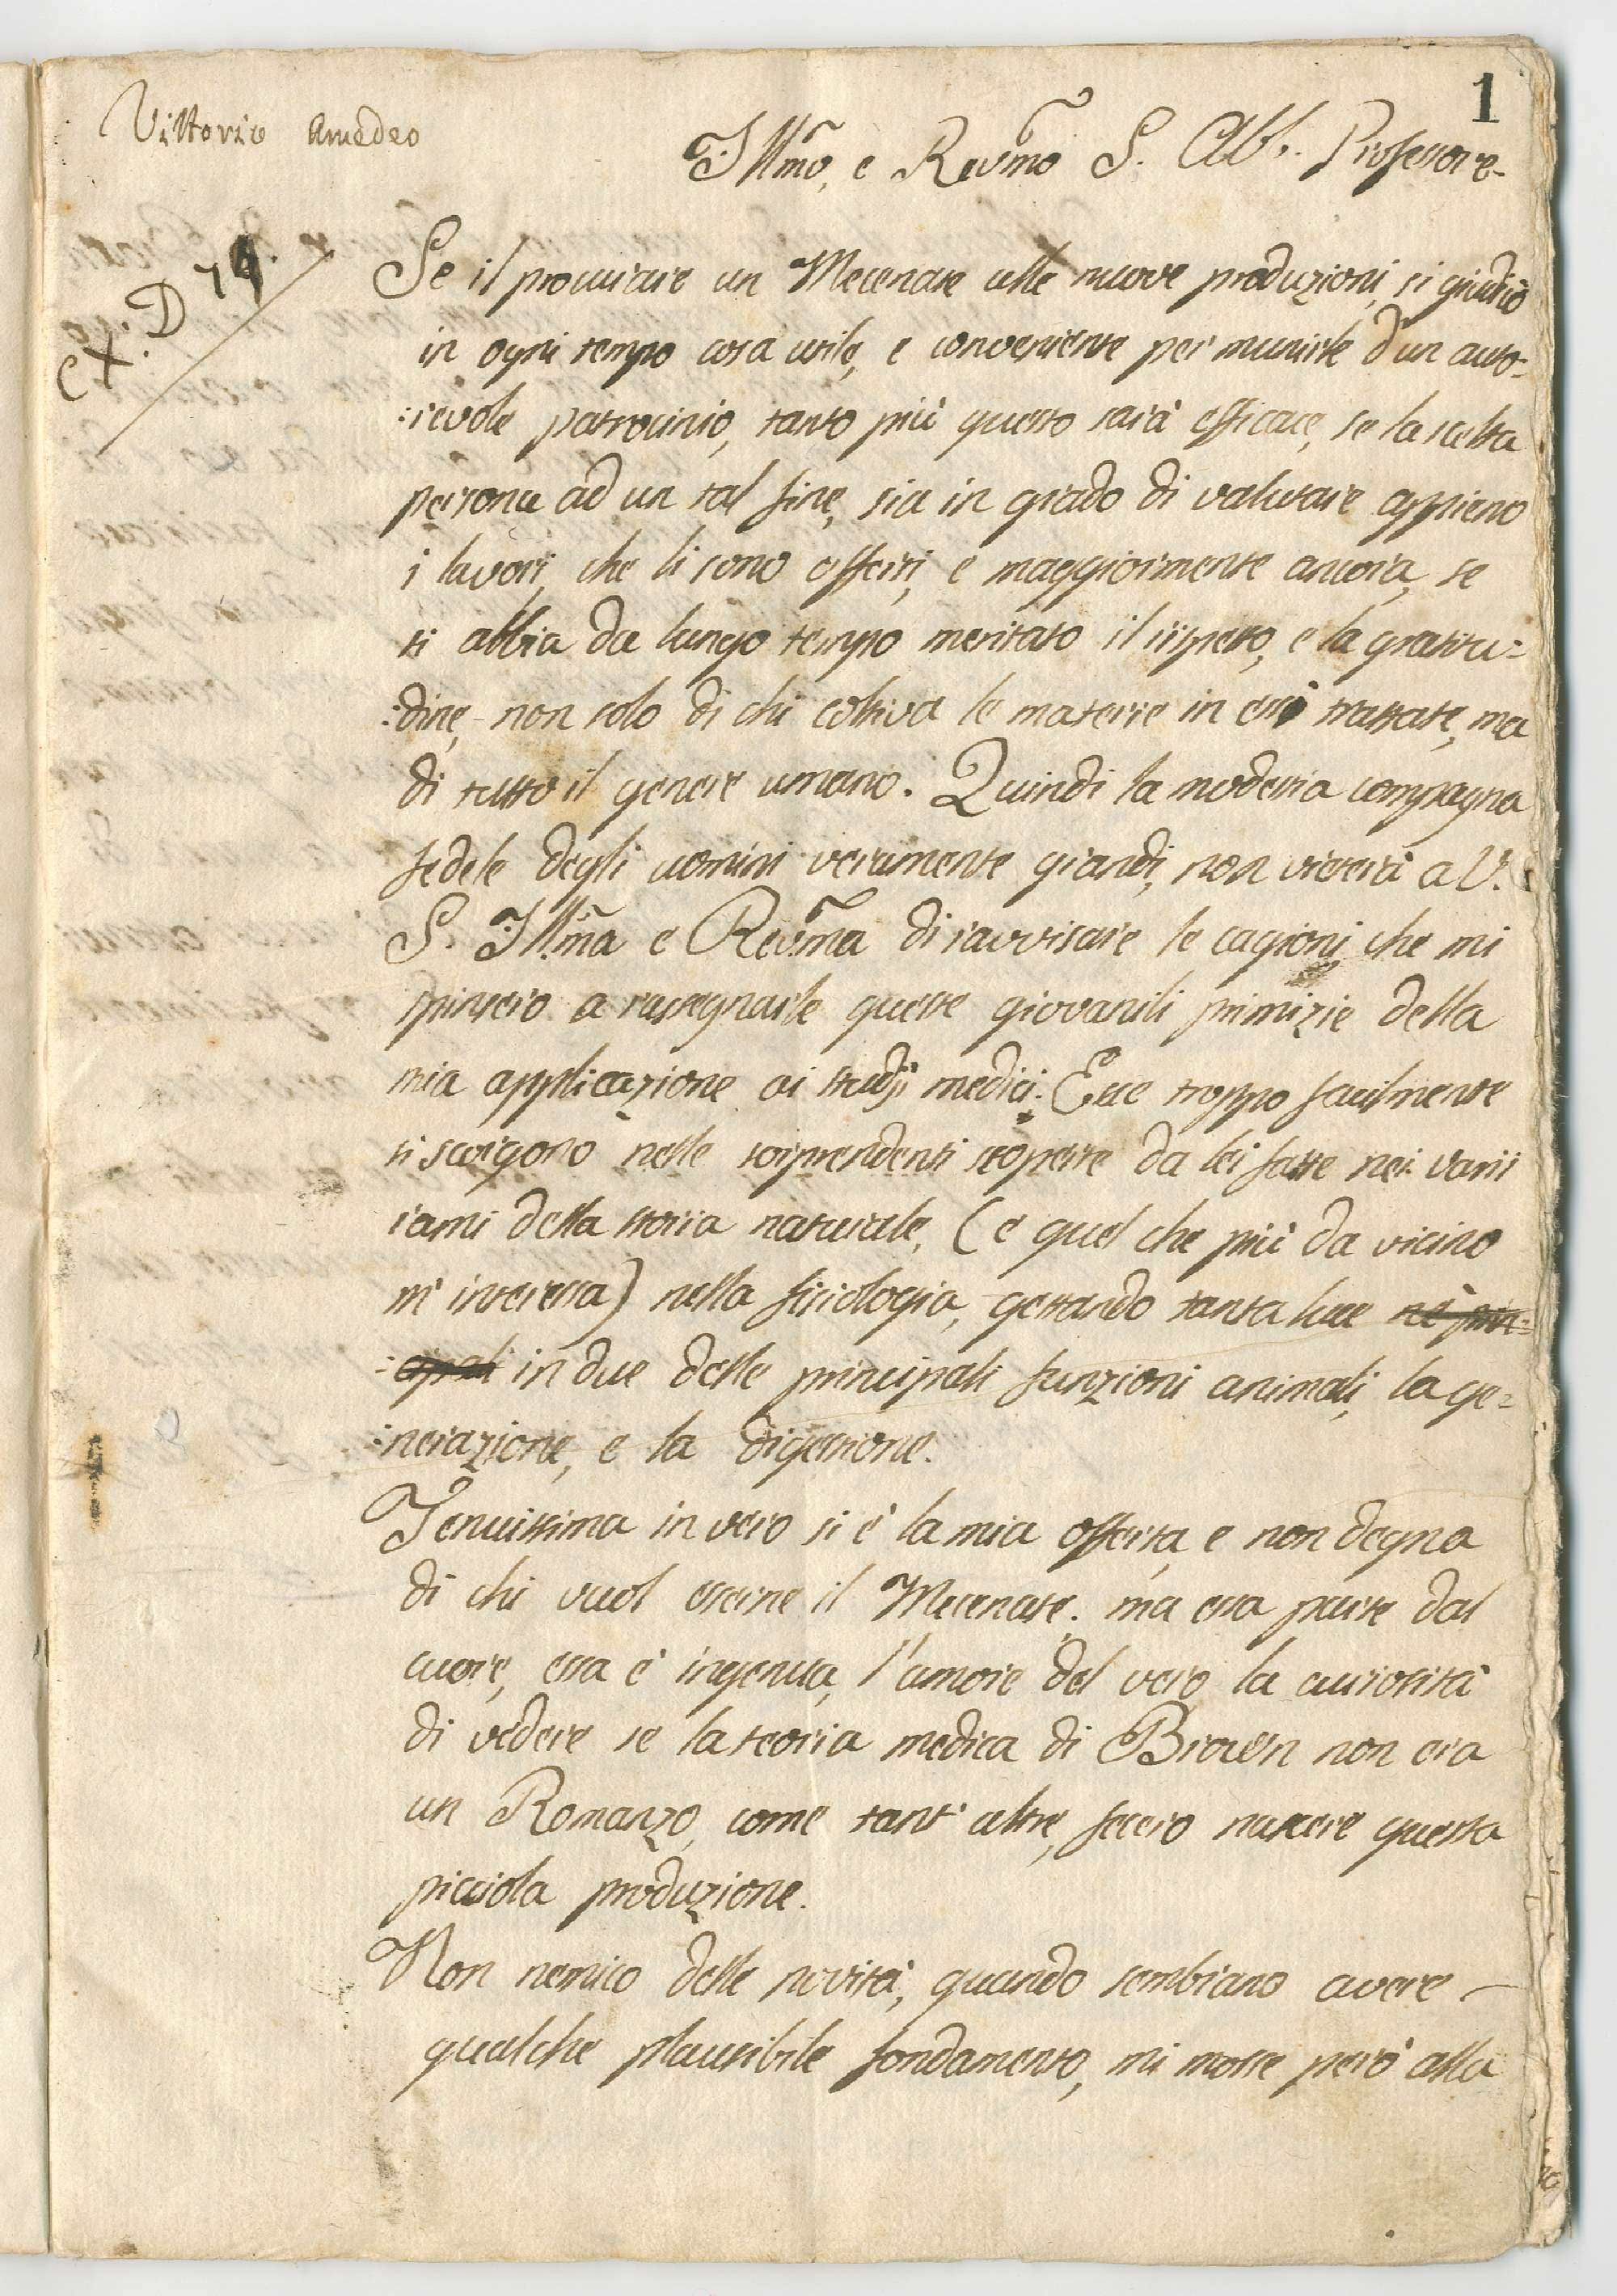 1
Vittorio Amedeo
Illmo, e Revmo S. Abb. Professore.
Ex. D 74.
Se il procurare un Mecenate alle nuove produzioni, si giudicò
in ogni tempo cosa utile, e conveniente per munirle d'un auto-
:revole patrocinio, tanto più questo sarà efficace, se la scelta
persona ad un tal fine, sia in grado di valutare appieno
i lavori, che li sono offerti, e maggiormente ancora, se
si abbia da lungo tempo meritato il rispetto, e la gratitu:
:dine, non solo di chi coltiva le materie in essi trattate, ma
di tutto il genere umano. Quindi la modestia compagna
fedele degli uomini veramente grandi, non vieterà a V.
S. Illma e Revma di ravvisare le cagioni, che mi
spinsero a rassegnarle queste giovanili primizie della
mia applicazione ai studj medici. Esse troppo facilmente
si scorgono nelle sorprendenti scoperte da lei fatte nei varii
rami della storia naturale, (e quel che più da vicino
m'interessa) nella fisiologia, gettando tanta luce ne' prin:
:cipali in due delle principali funzioni animali, la ge:
:nerazione, e la digestione.
Tenuissima in vero si è la mia offerta, e non degna
di chi vuol esserne il Mecenate; ma essa parte dal
cuore, essa è ingenua, l'amore del vero, la curiosità
di vedere se la teoria medica di Brown non era
un Romanzo, come tant'altre, fecero nascere questa
picciola produzione.
Non nemico delle novità, quando sembrano avere
qualche plausibile fondamento, mi mosse però alla